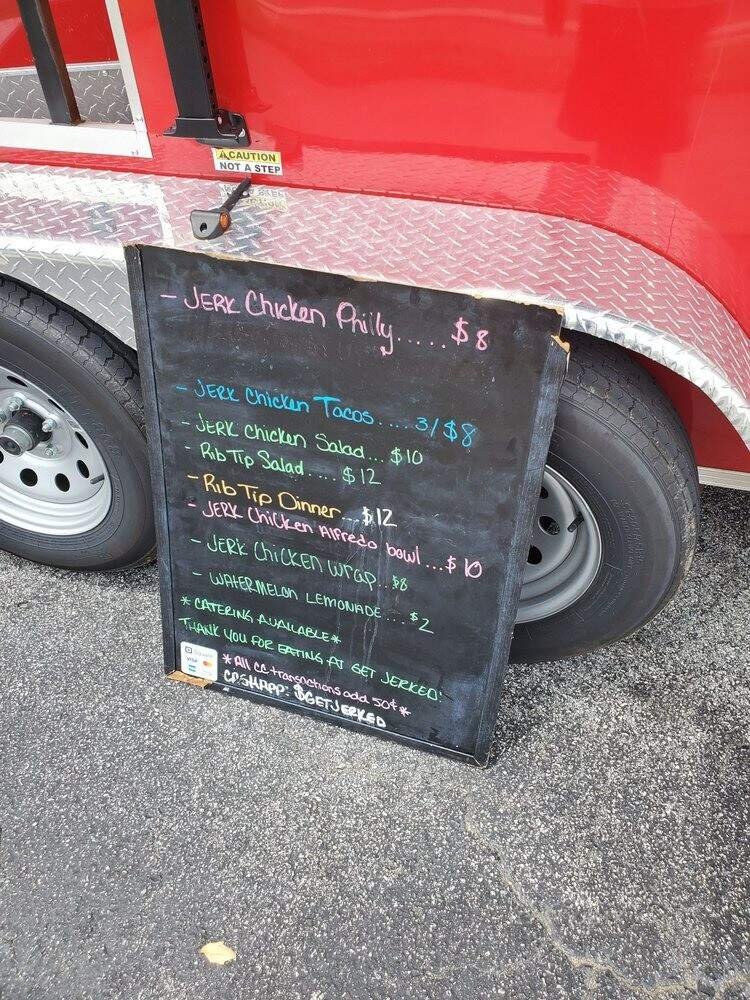 CAUTION
NOT A STEP
- JERK Chicken Philly..... $8
- JERK Chicken Tacos.... 3/$8
- JERK Chicken Salad... $10
- Rib Tip Salad..... $12
- Rib Tip Dinner... $12
- JERK Chicken Alfredo bowl... $10
- JERK Chicken Wrap.. $8
- WATERMELON LEMONADE... $2
* CATERING AVAILABLE *
THANK YOU FOR EATING AT GET JERKED!
Square
VISA
* All CC transactions add 50¢ *
CASHAPP: $GETJERKED